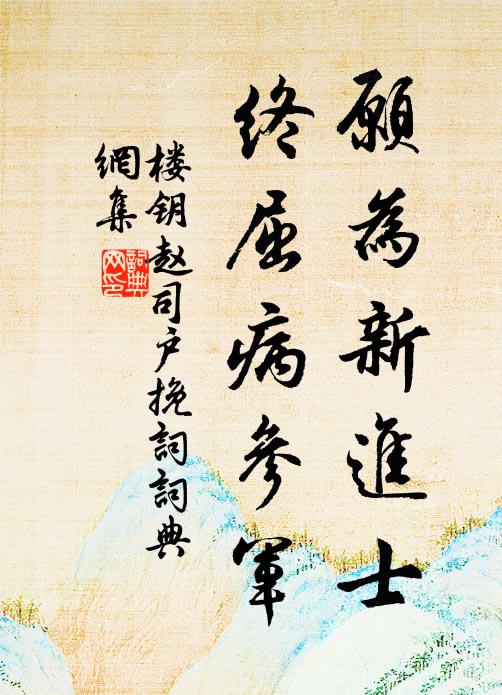 願為新進士
終屈病參軍
楼钥赵司户挽詞詞典
網集
詞典
网印